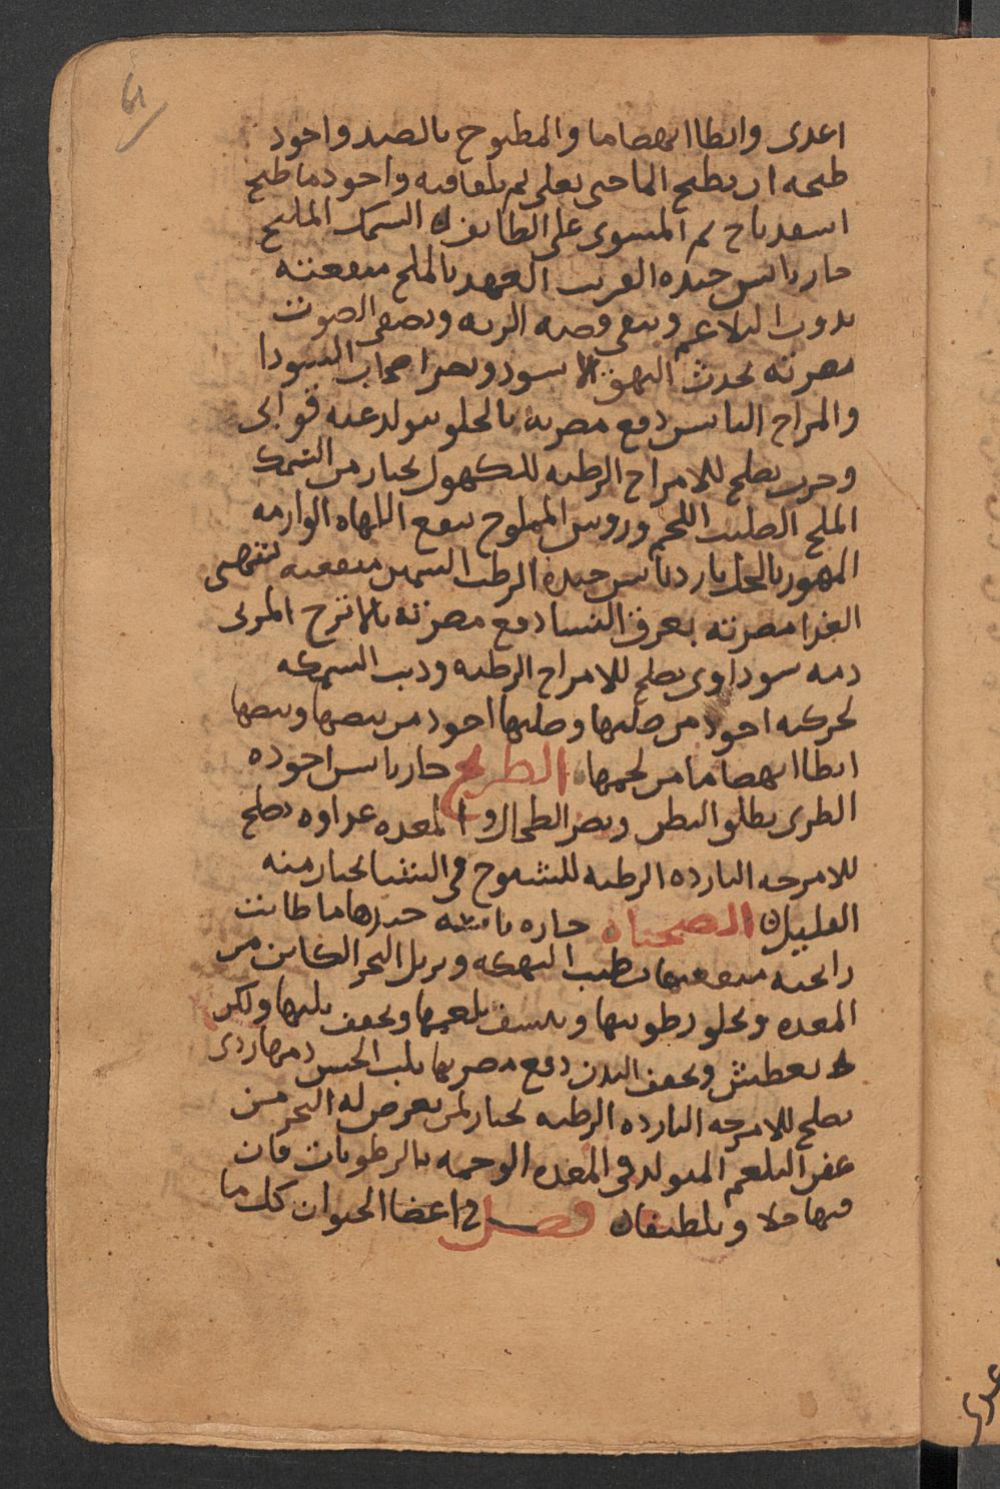 اغذى وابطا انهضاما والمطبوخ بالضد واجود
طبخه ان يطبخ الماحتى يغلى ثم يلقافيه واجود ما طبخ
اسفدباج ثم المشوى على الطابق السمك المليح
حار يابس جيده القريب العهد بالملح منفعته
يذوب البلاغم وينقى قصبه الريه ويصفى الصوت
مضرته يحدث البهق الاسود ويضر اصحاب السودا
والمزاج اليابس دفع مضرته بالحلو يتولد عنه قوابى
وجرب يصلح للامزاج الرطبه للكهول يختار من السمك
الملح الصلب اللحم وروس المملوح ينفع اللهاه الوارمه
الممقور بالخل بارد يابس جيده الرطب السمين منفعته
الغذا مضرته بعرق النسا دفع مضرته بالاترج المربى
دمه سوداوى يصلح للامزاج الرطبه وذنب السمكه
لحركته اجود من صلبها وصلبها اجود من بيضها وبيضها
ابطا انهضاما من لحمها الطريخ حار يابس اجوده
الطرى يطلق البطن ويضر الطحال و المعده غداوه يصلح
للامزجه البارده الرطبه للشيوخ فى الشتا يختار منه
القليل الصحناه حاره يابسه جيدها ما طابت
رايحته منفعتها يطيب النهكه ويزيل البخر الكاين من
المعده ويجلو رطوبتها وينشف بلغمها ويجفف بلتها ولكن
يعطش ويجفف البدن دفع مضرتها بلب الخس دمها ردى
يصلح للامزجه البارده الرطبه يختار لمن يعرض له البخر من
عفن البلغم المتولد فى المعده الوخمه بالرطوبات فان
فيها جلا وتلطيفا فصل فى اعضا الحيوان كل ما